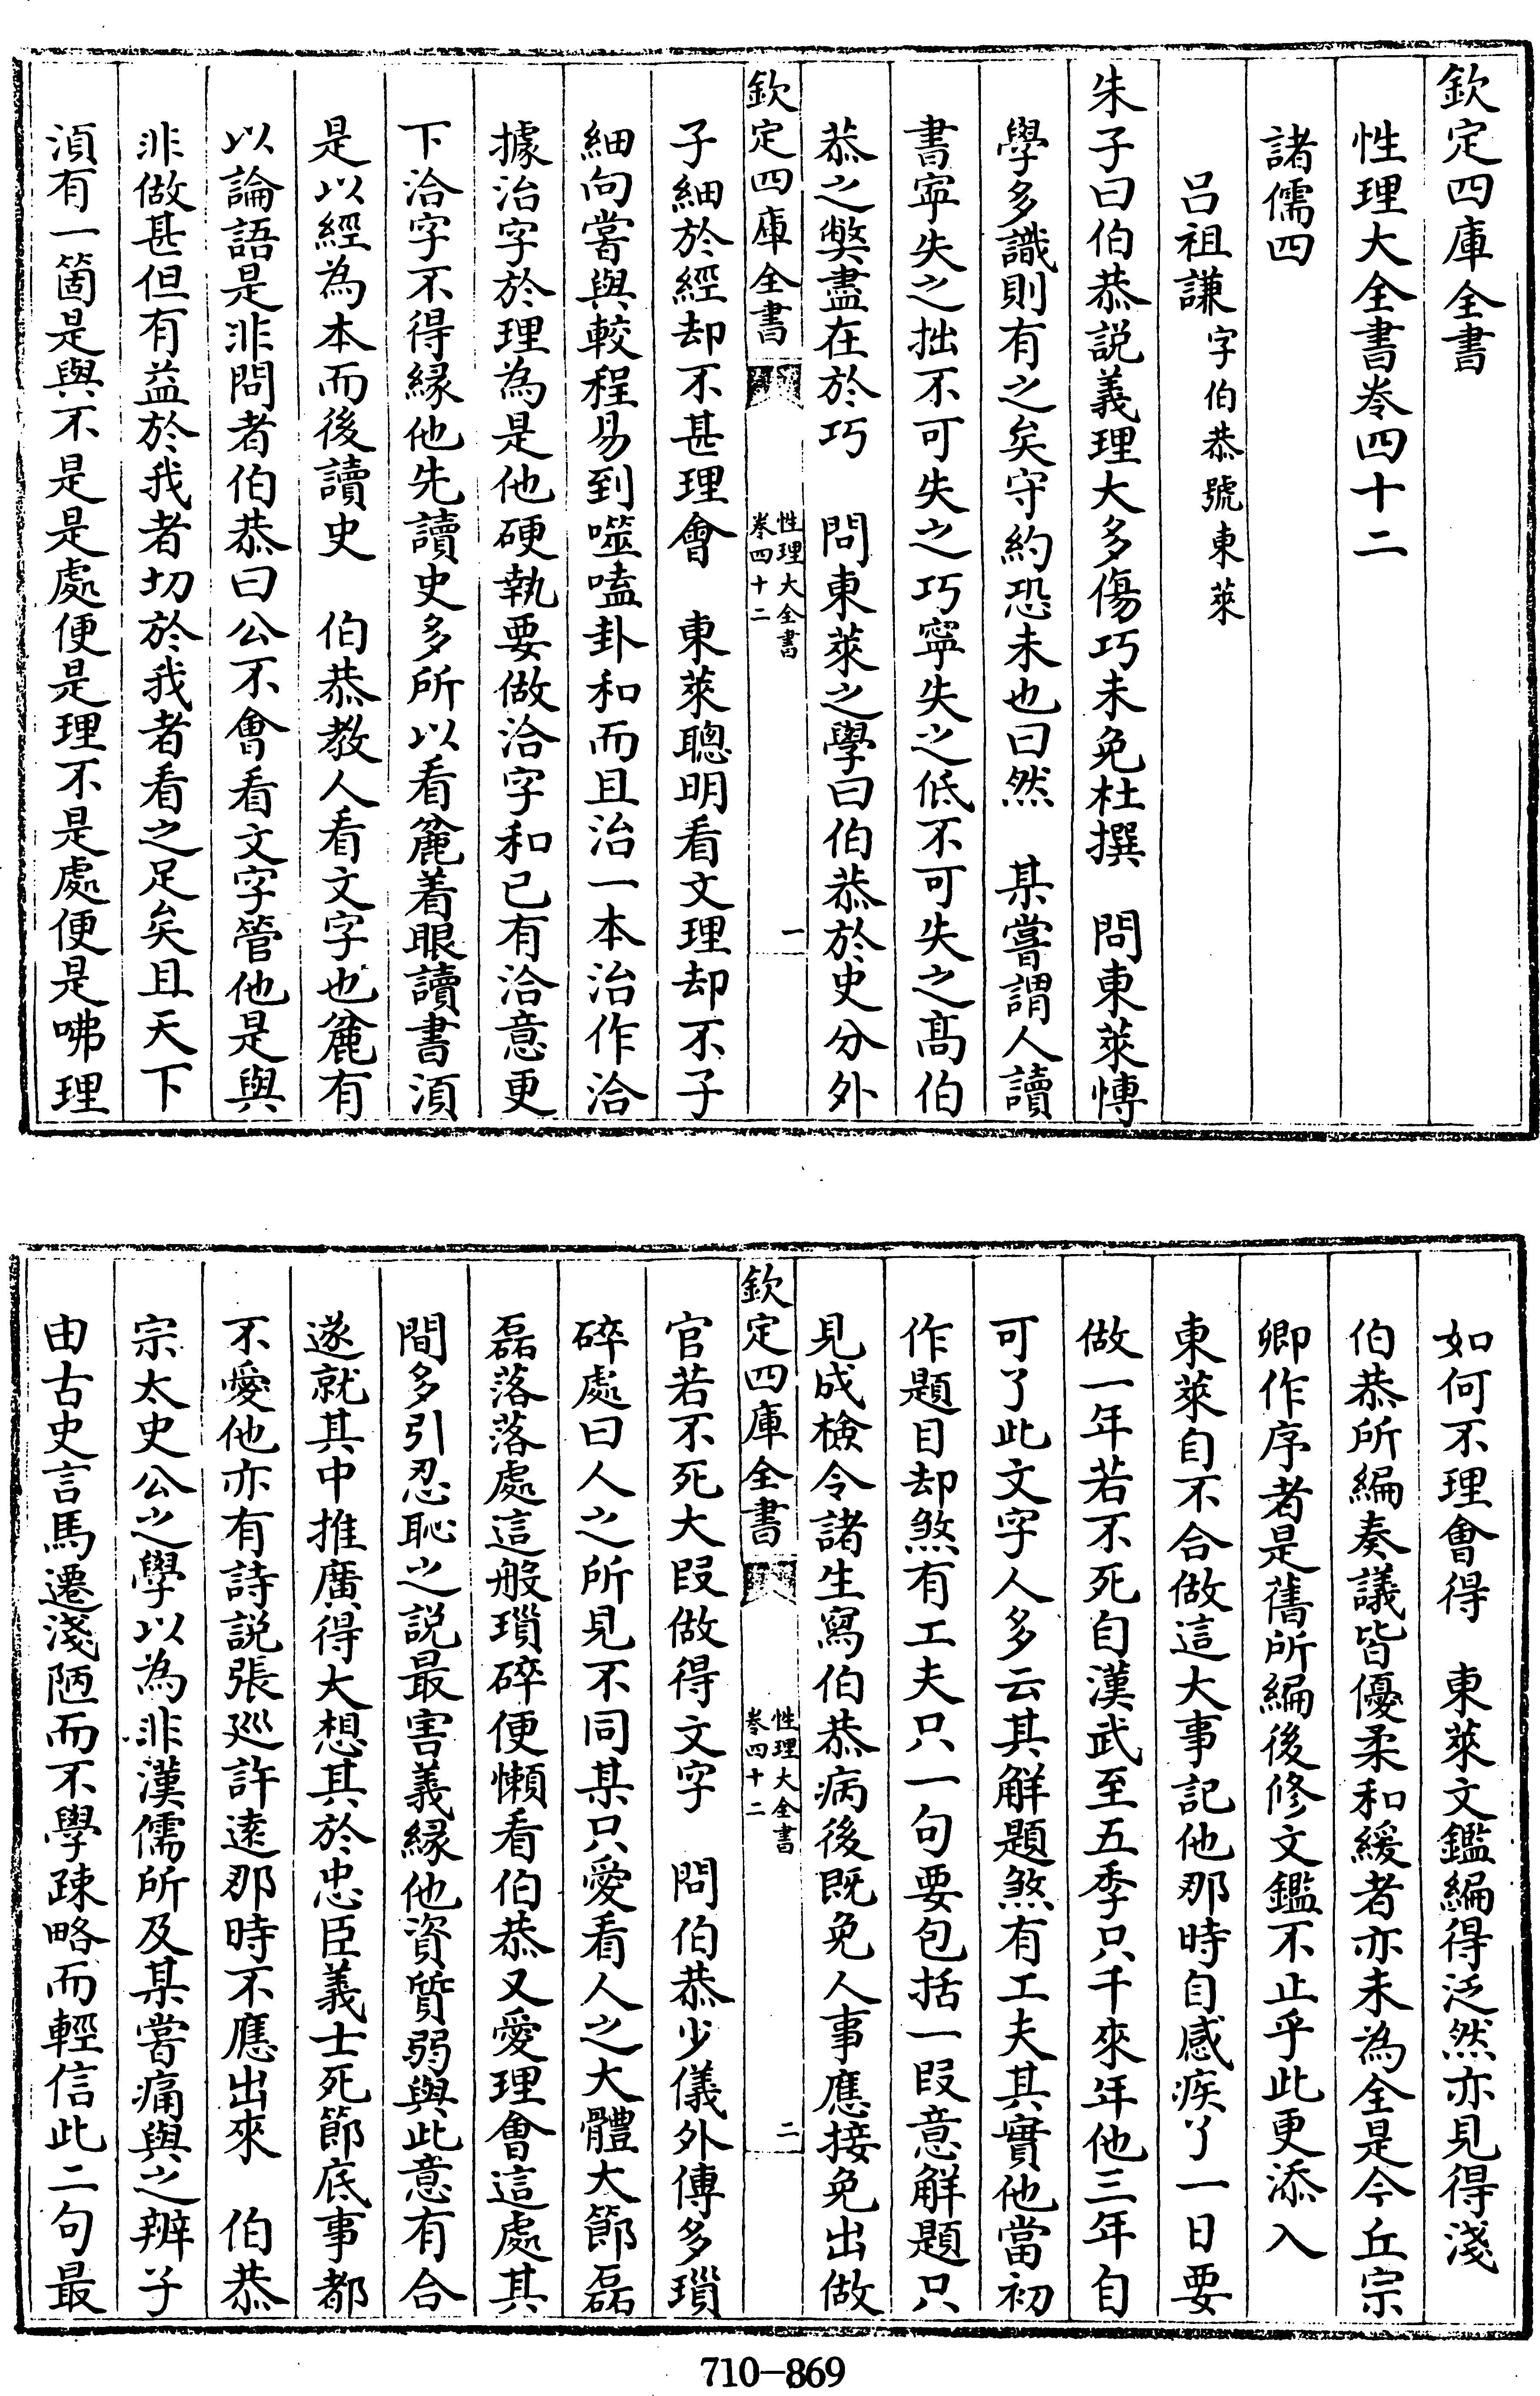 欽定四庫全書
性理大全書卷四十二
諸儒四
呂祖謙字伯恭號東萊
朱子曰伯恭説義理大多傷巧未免杜撰　問東萊愽
學多識則有之矣守約恐未也曰然　某嘗謂人讀
書寧失之拙不可失之巧寧失之低不可失之髙伯
恭之獘盡在於巧　問東萊之學曰伯恭於史分外
欽定四庫全書　性理大全書卷四十二　一
子細於經却不甚理會　東萊聰明看文理却不子
細向嘗與較程易到噬嗑卦和而且治一本治作洽
據治字於理為是他硬執要做洽字和已有洽意更
下洽字不得縁他先讀史多所以看麄着眼讀書湏
是以經為本而後讀史　伯恭教人看文字也麄有
以論語是非問者伯恭曰公不㑹看文字管他是與
非做甚但有益於我者切於我者看之足矣且天下
湏有一箇是與不是是處便是理不是處便是咈理
如何不理會得　東萊文鑑編得泛然亦見得淺
伯恭所編奏議皆優柔和緩者亦未為全是今丘宗
卿作序者是舊所編後修文鑑不止乎此更添入
東萊自不合做這大事記他那時自感疾了一日要
做一年若不死自漢武至五季只千來年他三年自
可了此文字人多云其解題煞有工夫其實他當初
作題目却煞有工夫只一句要包括一段意解題只
見成檢令諸生寫伯恭病後既免人事應接免出做
欽定四庫全書　性理大全書卷四十二　二
官若不死大段做得文字　問伯恭少儀外傳多瑣
碎處曰人之所見不同某只愛看人之大體大節磊
磊落落處這般瑣碎便懶看伯恭又愛理會這處其
間多引忍恥之説最害義縁他資質弱與此意有合
遂就其中推廣得大想其於忠臣義士死節底事都
不愛他亦有詩説張巡許逺那時不應出來　伯恭
宗太史公之學以為非漢儒所及某嘗痛與之辨子
由古史言馬遷淺陋而不學疎略而輕信此二句最
710-869